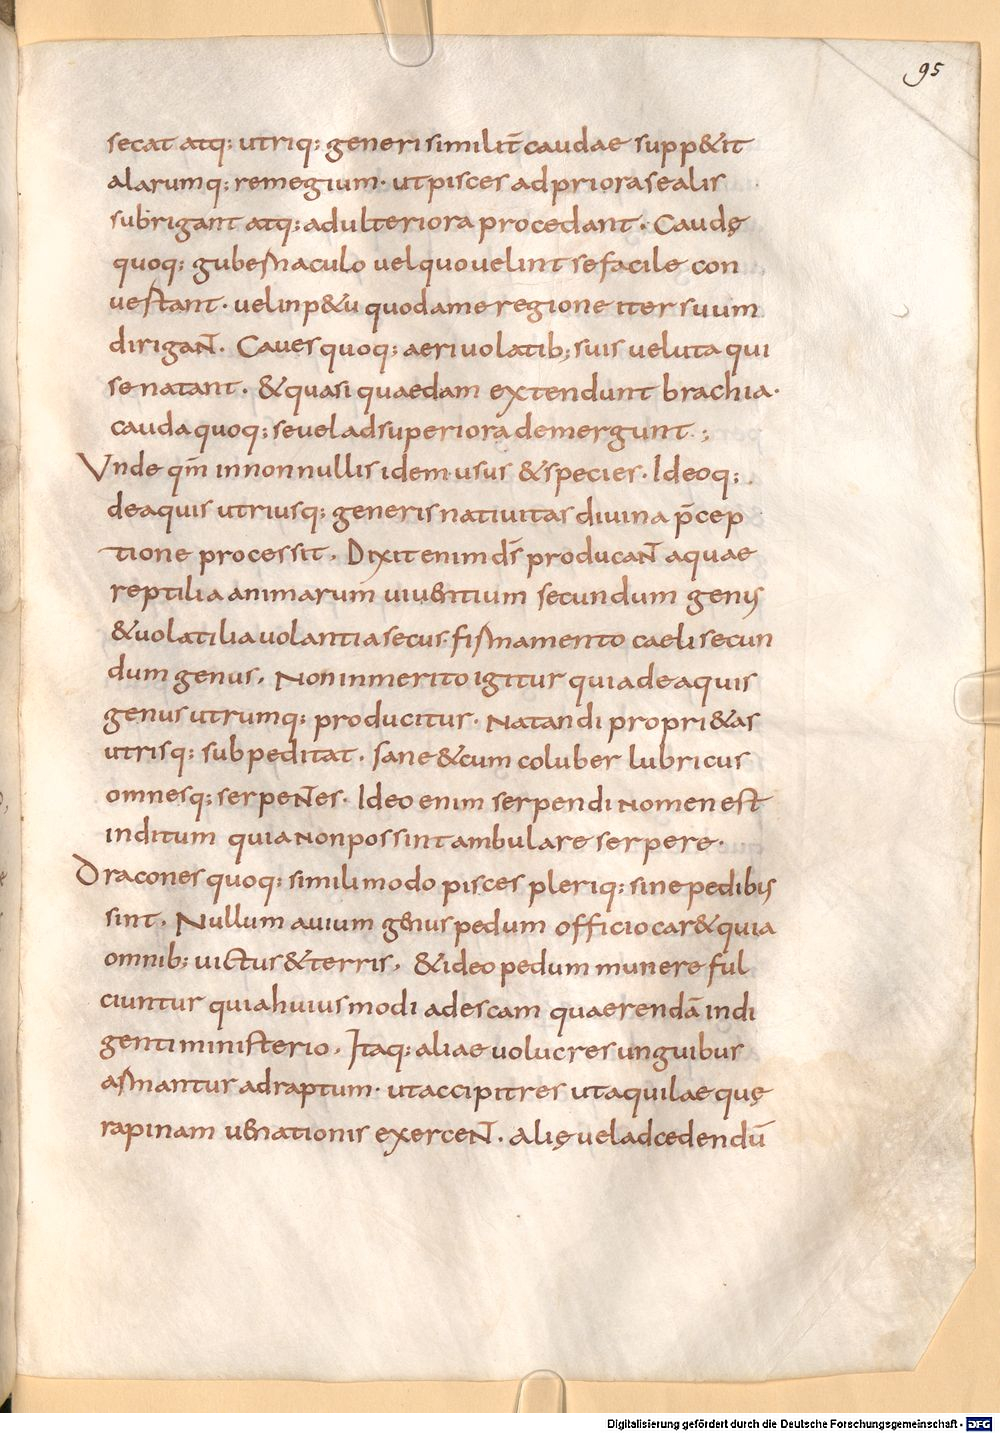 95
secat atq; utriq; generi similit̄ caudae supp&it
alarumq; remegium · ut pisces ad priora se alis
subrigant atq; ad ulteriora procedant · Caudę
quoq; gubernaculo uel quo uelint se facile con
uertant · uel inp&u quodam e regione iter suum
dirigaNT · Caues quoq; aeri uolatib; suis uelut aqui
se natant · & quasi quaedam extendunt brachia ·
cauda quoq; se uel ad superiora demergunt ·;
Vnde qm̄ in nonnullis idem usus & species · Ideoq;
de aquis utriusq; generis natiuitas diuina p̄cep
tione processit · Dixit enim ds̄ producaNT aquae
reptilia animarum uiuentium secundum genus
& uolatilia uolantia secus firmamento caeli secun
dum genus · Non inmerito igitur quia de aquis
genus utrumq; producitur · Natandi propri&as
utrisq; subpeditat · Sane & cum coluber lubricus
omnesq; serpeNTes · Ideo enim serpendi nomen est
inditum quia non possint ambulare serpere ·
Dracones quoq; simili modo pisces pleriq; sine pedibus
sint · Nullum auium genus pedum officio car& quia
omnib; uictus & terris · & ideo pedum munere ful
ciuntur quia huiusmodi ad escam quaerendā indi
gent ministerio · Itaq; aliae uolucres unguibus
armantur ad raptum · ut accipitres ut aquilae quę
rapinam uenationis exerceNT · Alię uel ad cedendū
Digitalisierung gefördert durch die Deutsche Forschungsgemeinschaft - DFG